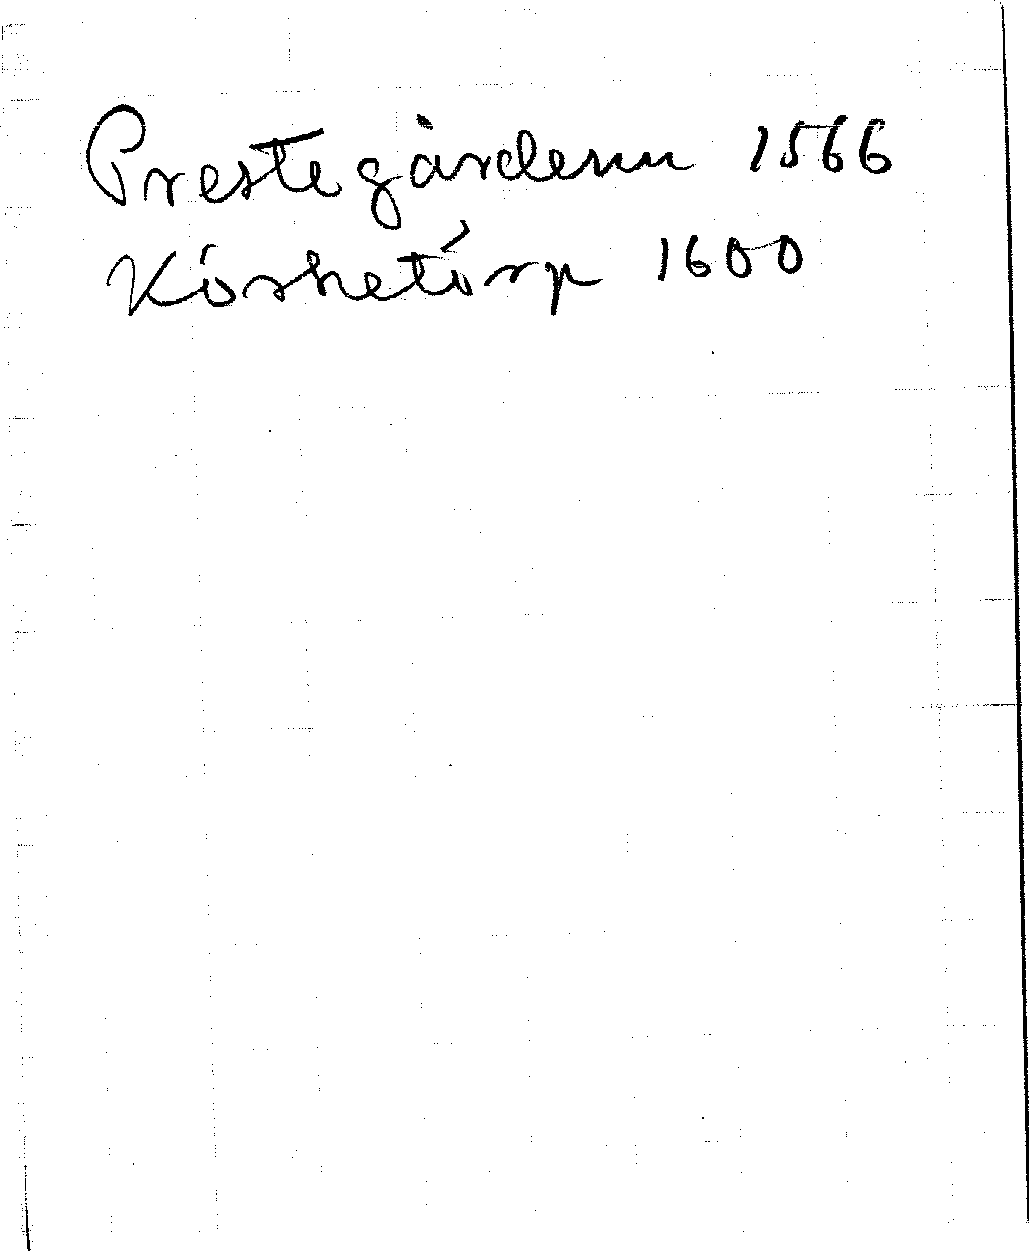 Prestegårdenn 1566
Kórketórp 1600